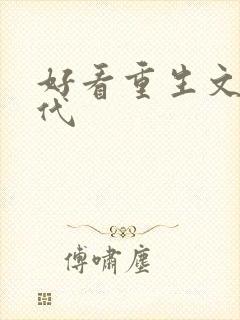 好看重生文
代
傅啸尘